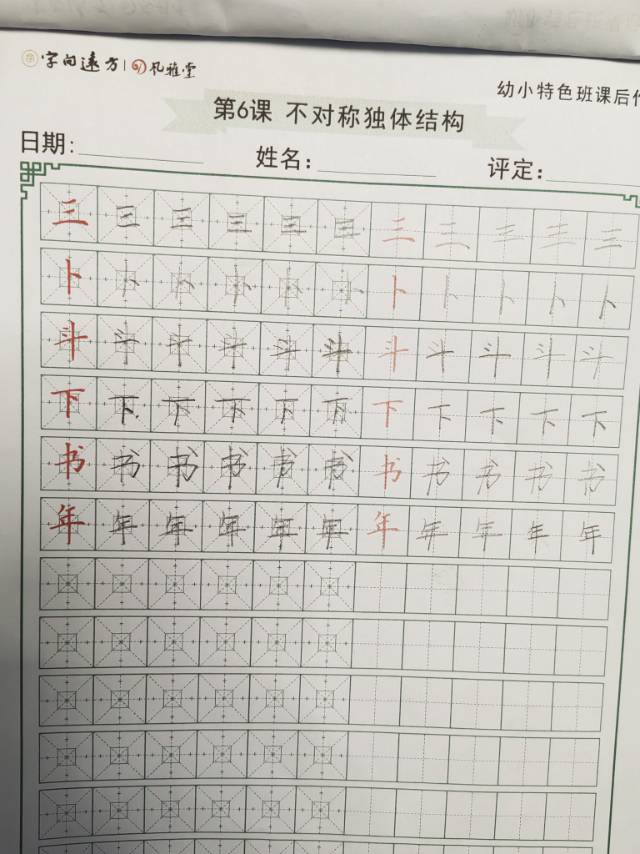 字向遠方 風雅堂
幼小特色班课后作
第6课 不对称独体结构
日期: 姓名: 评定:
三 三 三 三 三 三 三 三 三 三 三
卜 卜 卜 卜 卜 卜 卜 卜 卜 卜 卜
斗 斗 斗 斗 斗 斗 斗 斗 斗 斗 斗
下 下 下 下 下 下 下 下 下 下 下
书 书 书 书 书 书 书 书 书 书 书
年 年 年 年 年 年 年 年 年 年 年